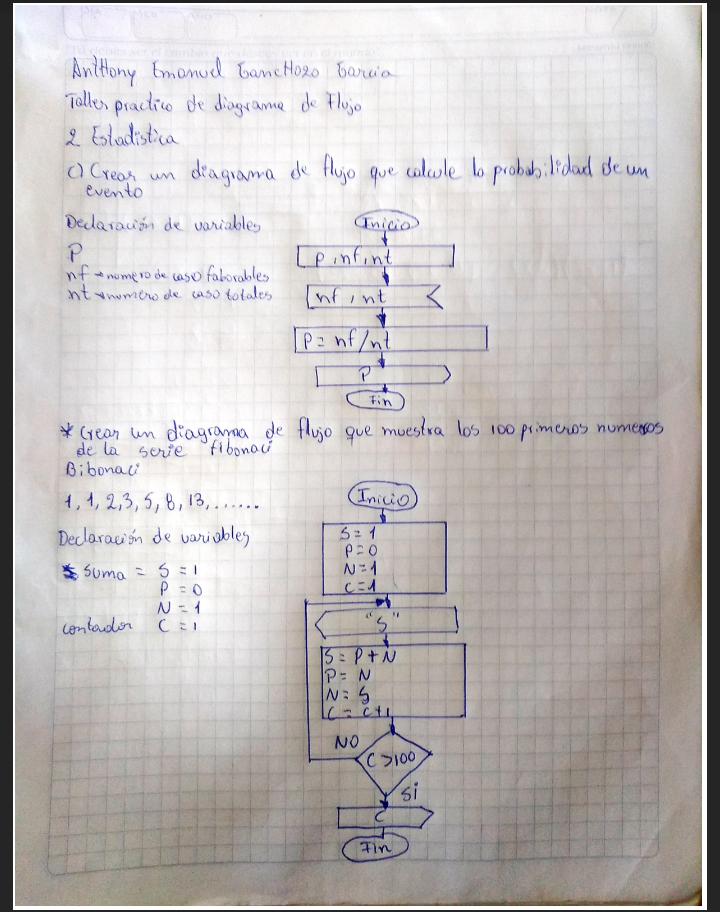 Anthony Emanuel Ganchozo Garcia
Taller practico de diagrama de Flujo
2 Estadistica
c) Crear un diagrama de flujo que calcule la probabilidad de un
evento
Declaración de variables
P
nf → numero de caso faborables
nt → numero de caso totales
Inicio
P, nf, nt
nf, nt
P = nf/nt
P
Fin
* Crear un diagrama de flujo que muestra los 100 primeros numeros
de la serie fibonaci
Bibonaci
1, 1, 2, 3, 5, 8, 13, .......
Declaración de variables
Suma = S = 1
P = 0
N = 1
contador C = 1
Inicio
S = 1
P = 0
N = 1
C = 1
"S"
S = P + N
P = N
N = S
C = C+1
NO
C > 100
Si
C
Fin